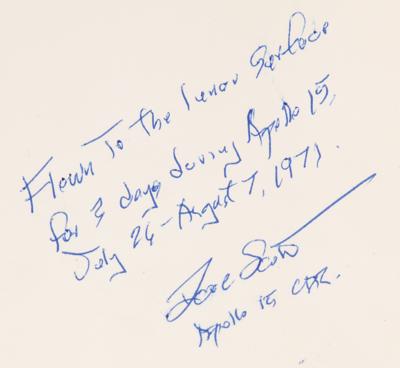 Flown To the Lunar Surface
for 3 days during Apollo 15,
July 26-August 7, 1971.
Dave Scott
Apollo 15 CDR.